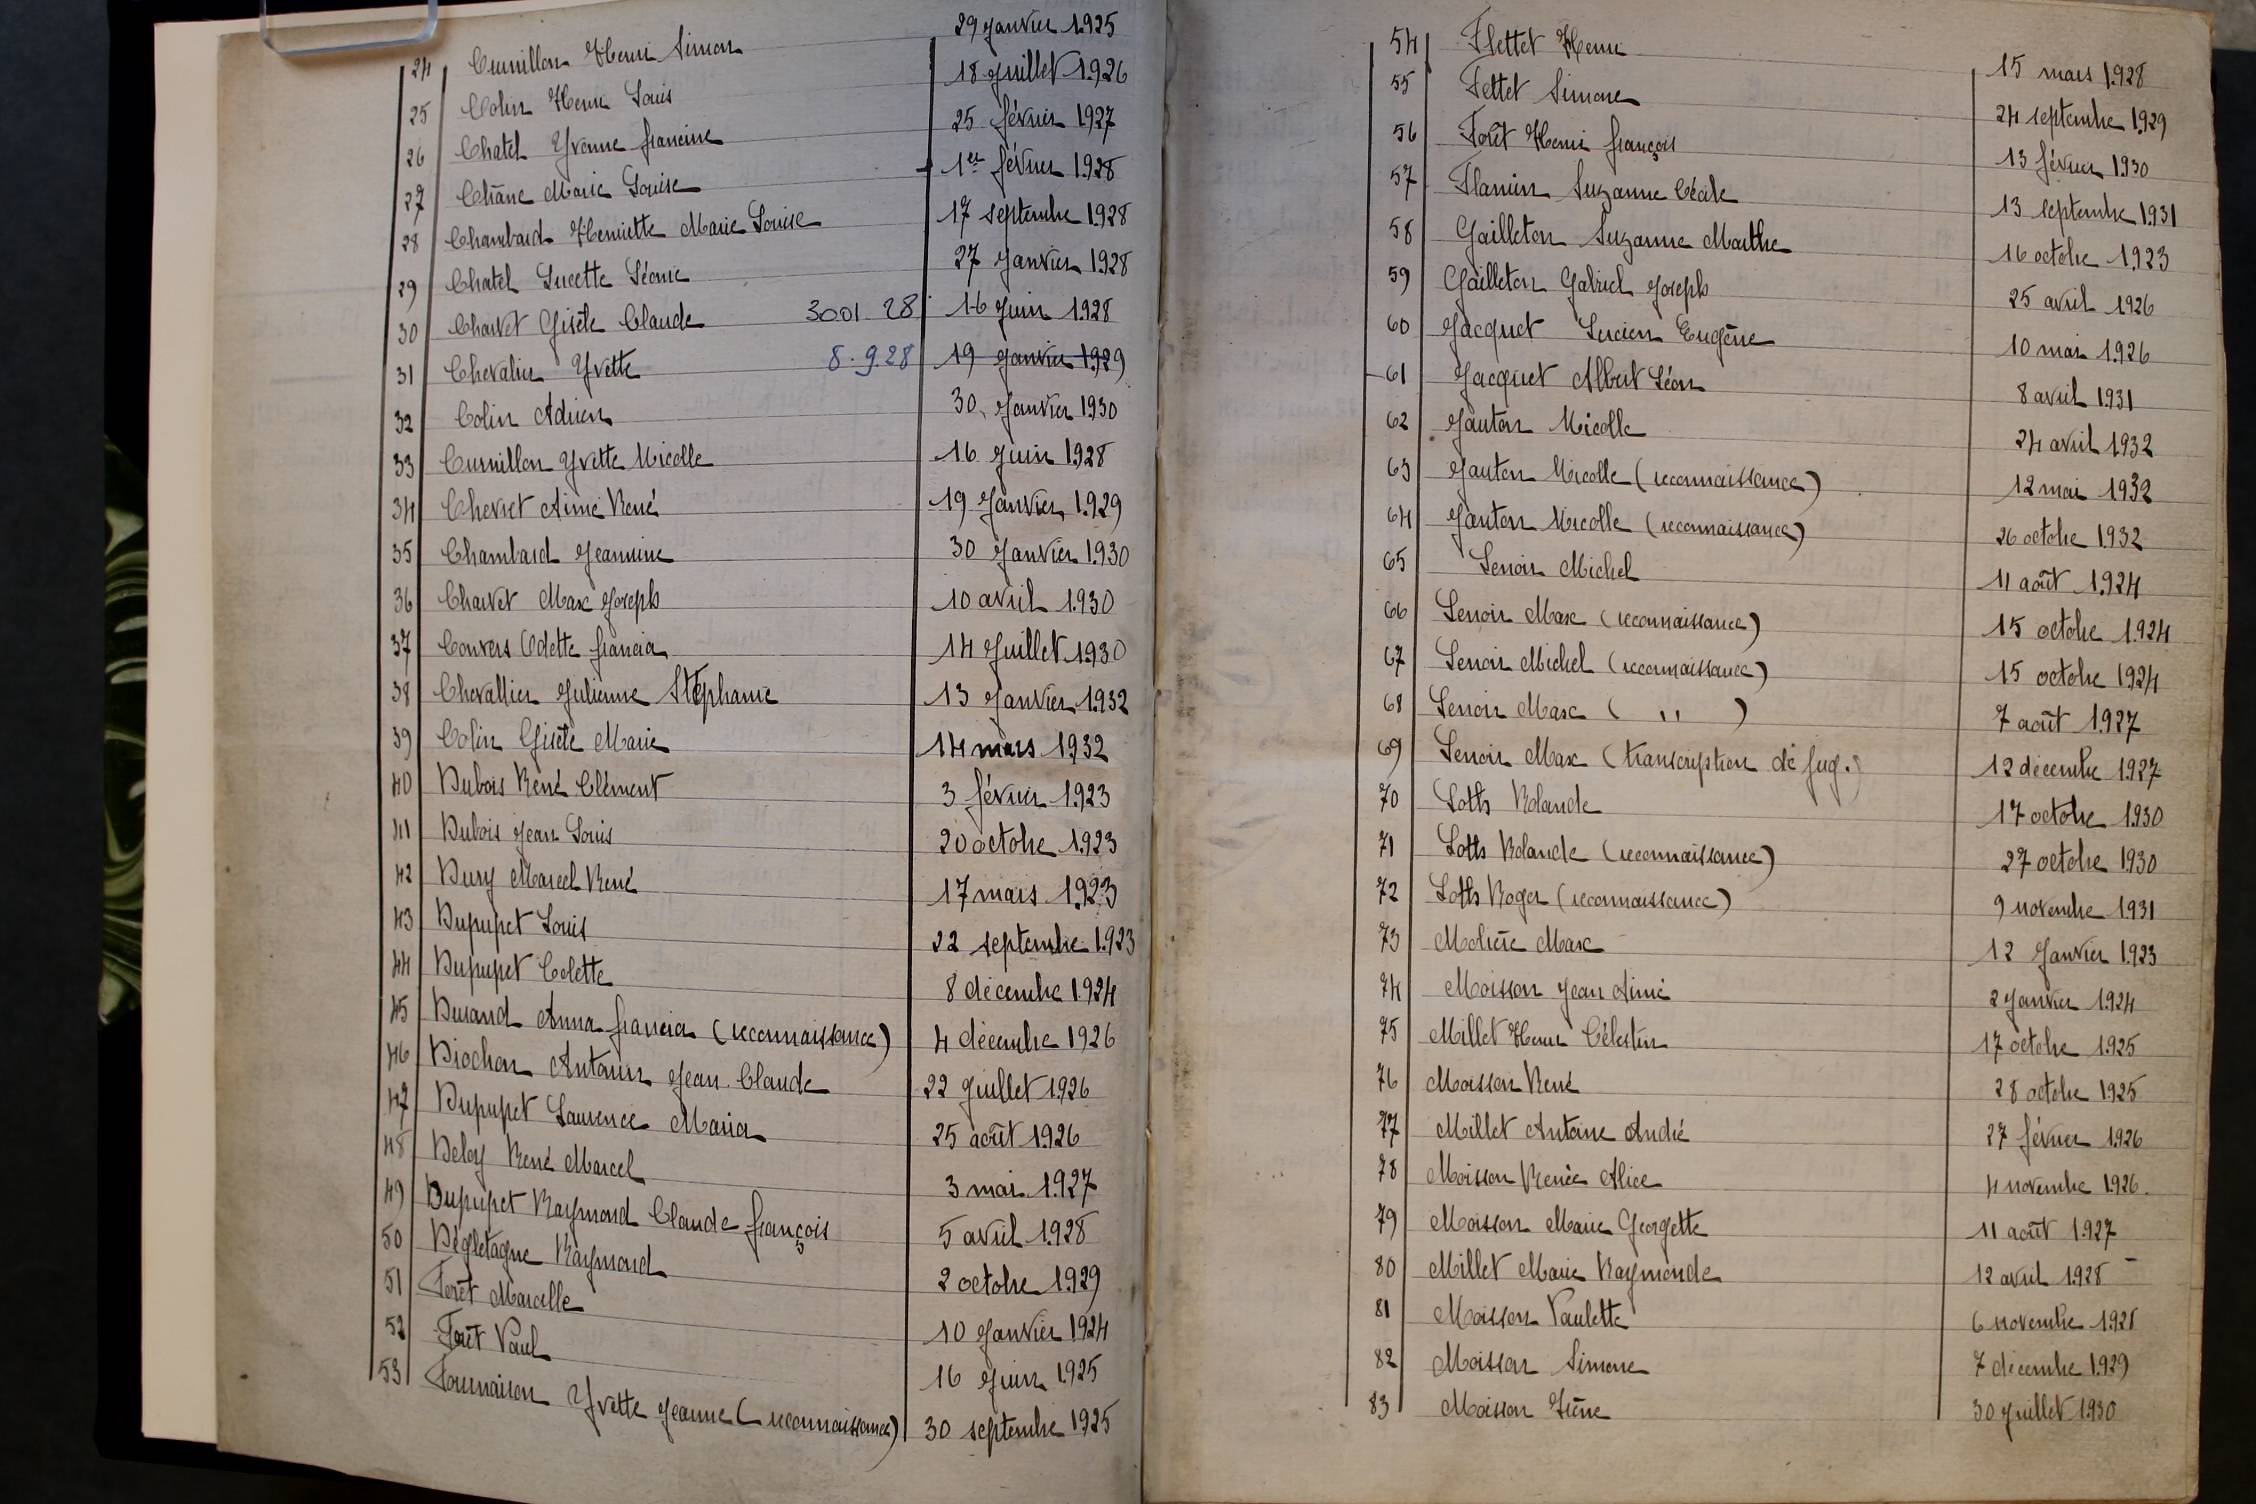 24 Curnillon Henri Simon 29 Janvier 1925
25 Colin Henri Louis 18 Juillet 1926
26 Chatel Yvonne francine 25 février 1927
27 Châne Marie Louise 1er février 1928
28 Chambard Henriette Marie Louise 17 septembre 1928
29 Chatel Lucette Léonie 27 Janvier 1928
30 Charvet Gisèle Claude 30 01 28 16 Juin 1928
31 Chevalier Yvette 8.9.28 19 Janvier 1929
32 Colin Adrien 30 Janvier 1930
33 Curnillon Yvette Nicolle 16 Juin 1928
34 Chevret Aimé René 19 Janvier 1929
35 Chambard Jeannine 30 Janvier 1930
36 Charvet Max Joseph 10 avril 1930
37 Convers Odette francia 14 Juillet 1930
38 Chevallier Julienne Stéphanie 13 Janvier 1932
39 Colin Gisèle Marie 14 mars 1932
40 Dubois René Clément 3 février 1923
41 Dubois Jean Louis 20 octobre 1923
42 Dury Marcel René 17 mars 1923
43 Dupupet Louis 22 septembre 1923
44 Dupupet Colette 8 décembre 1924
45 Durand Anna francia (reconnaissance) 4 décembre 1926
46 Diochon Antonin Jean Claude 22 Juillet 1926
47 Dupupet Laurence Maria 25 août 1926
48 Deloy René Marcel 3 mai 1927
49 Dupupet Raymond Claude françois 5 avril 1928
50 Dégletagne Raymond 2 octobre 1929
51 Forêt Marcelle 10 Janvier 1924
52 Forêt Paul 16 Juin 1925
53 Fournaison Yvette Jeanne (reconnaissance) 30 septembre 1925
54 Flettet Henri 15 mars 1928
55 Fettet Simone 24 septembre 1929
56 Forêt Henri françois 13 février 1930
57 Flamin Suzanne Cécile 13 septembre 1931
58 Gailleton Suzanne Marthe 16 octobre 1923
59 Gailleton Gabriel Joseph 25 avril 1926
60 Jacquet Lucien Eugène 10 mai 1926
61 Jacquet Albert Léon 8 avril 1931
62 Janton Nicolle 24 avril 1932
63 Janton Nicolle (reconnaissance) 12 mai 1932
64 Janton Nicolle (reconnaissance) 26 octobre 1932
65 Lenoir Michel 11 août 1924
66 Lenoir Max (reconnaissance) 15 octobre 1924
67 Lenoir Michel (reconnaissance) 15 octobre 1924
68 Lenoir Max ( ,, ) 7 août 1927
69 Lenoir Max (transcription de jug.) 12 décembre 1927
70 Loth Rolande 17 octobre 1930
71 Loth Rolande (reconnaissance) 27 octobre 1930
72 Loth Roger (reconnaissance) 9 novembre 1931
73 Molière Max 12 Janvier 1923
74 Moisson Jean Aimé 2 Janvier 1924
75 Millet Henri Célestin 17 octobre 1925
76 Moisson René 28 octobre 1925
77 Millet Antoine André 27 février 1926
78 Moisson Renée Alice 4 novembre 1926
79 Moisson Marie Georgette 11 août 1927
80 Millet Marie Raymonde 12 avril 1928
81 Moisson Paulette 6 novembre 1928
82 Moisson Simone 7 décembre 1929
83 Moisson Irène 30 Juillet 1930